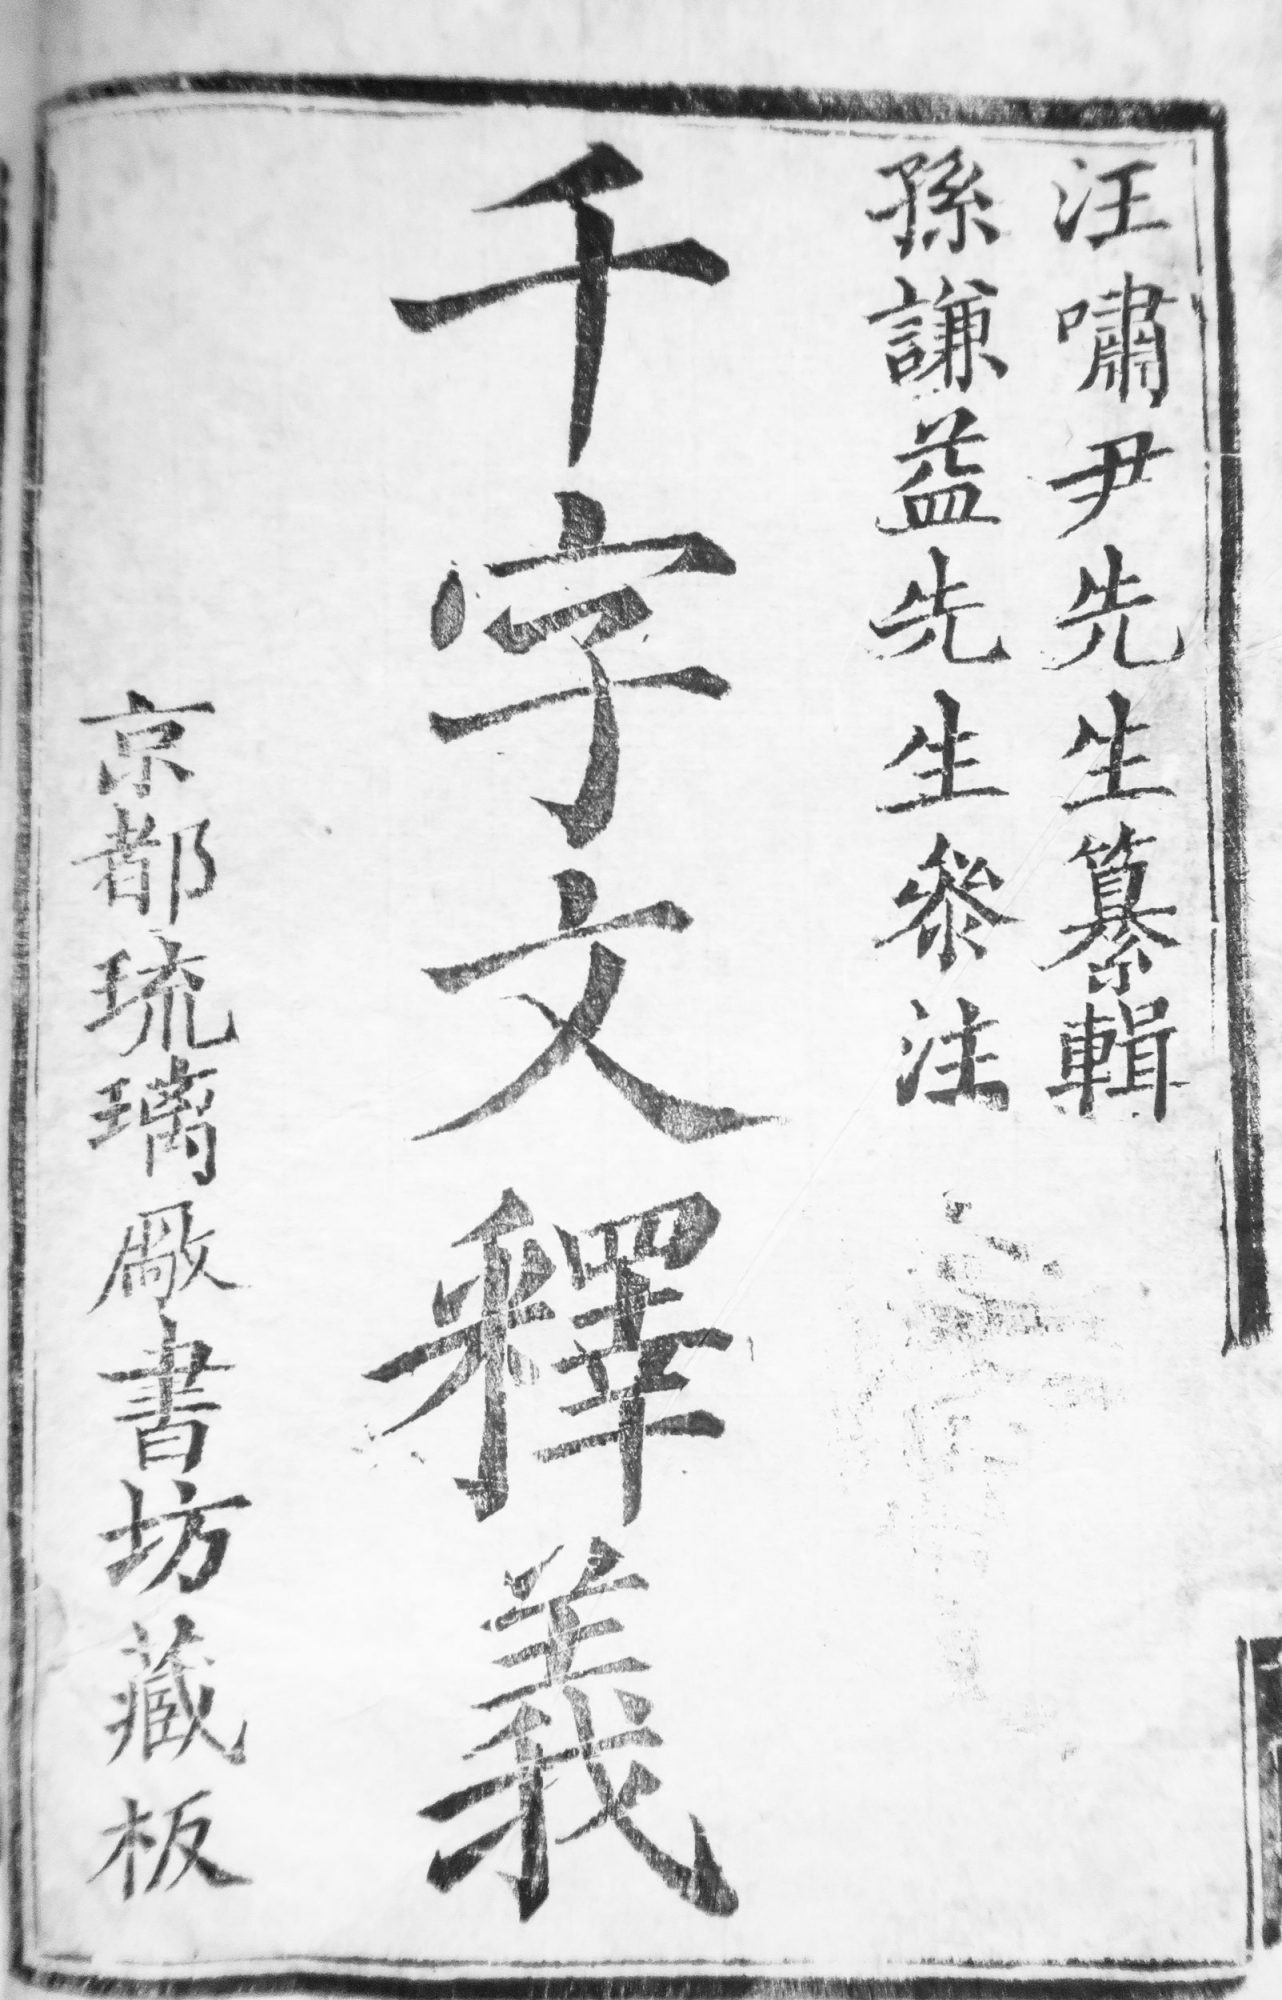 汪嘯尹先生纂輯
孫謙益先生參注
千字文釋義
京都琉璃廠書坊藏板